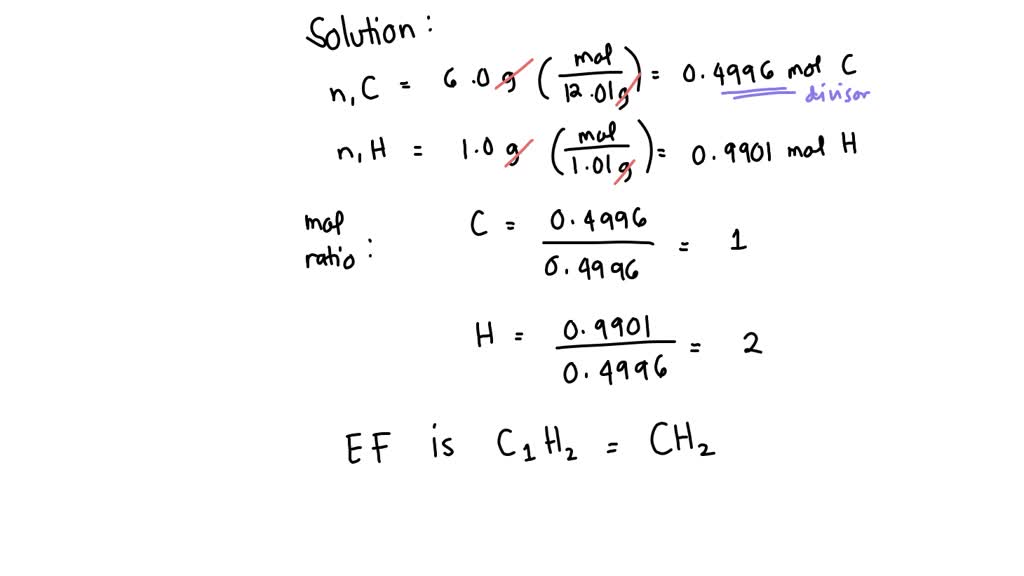 Solution:
n, C = 6.0 g (mol / 12.01g) = 0.4996 mol C
divisor
n, H = 1.0 g (mol / 1.01g) = 0.9901 mol H
mol ratio: C = 0.4996 / 0.4996 = 1
H = 0.9901 / 0.4996 = 2
EF is C₁H₂ = CH₂